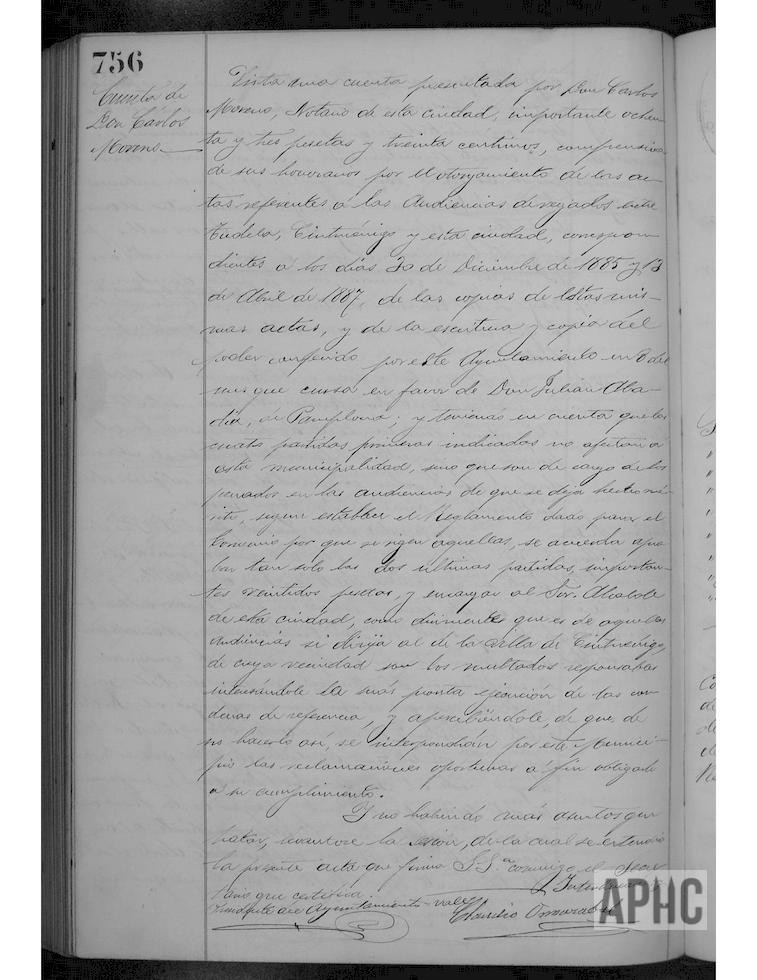 756
Cuenta de
Don Cárlos
Moreno
Vista una cuenta presentada por Don Carlos
Moreno, Notario de esta ciudad, importante ochen
ta y tres pesetas y treinta centimos, comprensiva
de sus honorarios por el otorgamiento de las ac-
tas referentes á las Audiencias de regadios entre
Tudela, Cintruénigo y esta ciudad, correspon-
dientes á los dias 30 de Diciembre de 1885 y 13
de Abril de 1887, de las copias de estas mis-
mas actas, y de la escritura y copia del
poder conferido por este Ayuntamiento en 8 del
mes que cursa en favor de Don Julian Aba-
dia, de Pamplona; y teniendo en cuenta que las
cuatro partidas primeras indicadas no afectan á
esta municipalidad, sino que son de cargo de los
penados en las audiencias de que se deja hecho mé-
rito, segun establece el Reglamento dado para el
Convenio por que se rigen aquellas, se acuerda apro
bar tan solo las dos últimas partidas, importan-
tes veintidos pesetas, y encargar al Sor. Alcalde
de esta ciudad, como que es de aquellas
audiencias se dirija al de la Villa de Cintruénigo,
de cuya vecindad son los multados responsables
interesándole la más pronta ejecución de las con
denas de referencia, y apercibiéndole, de que de
no hacerlo así, se interpondrán por este Munici-
pio las reclamaciones oportunas á fin obligarle
á su cumplimiento.
Y no habiendo más asuntos que
tratar, levantose la sesion, de la cual se extendió
la presente acta que firma S.Sª conmigo el Secre
tario que certifico.
Ayuntamiento - vale
APHC